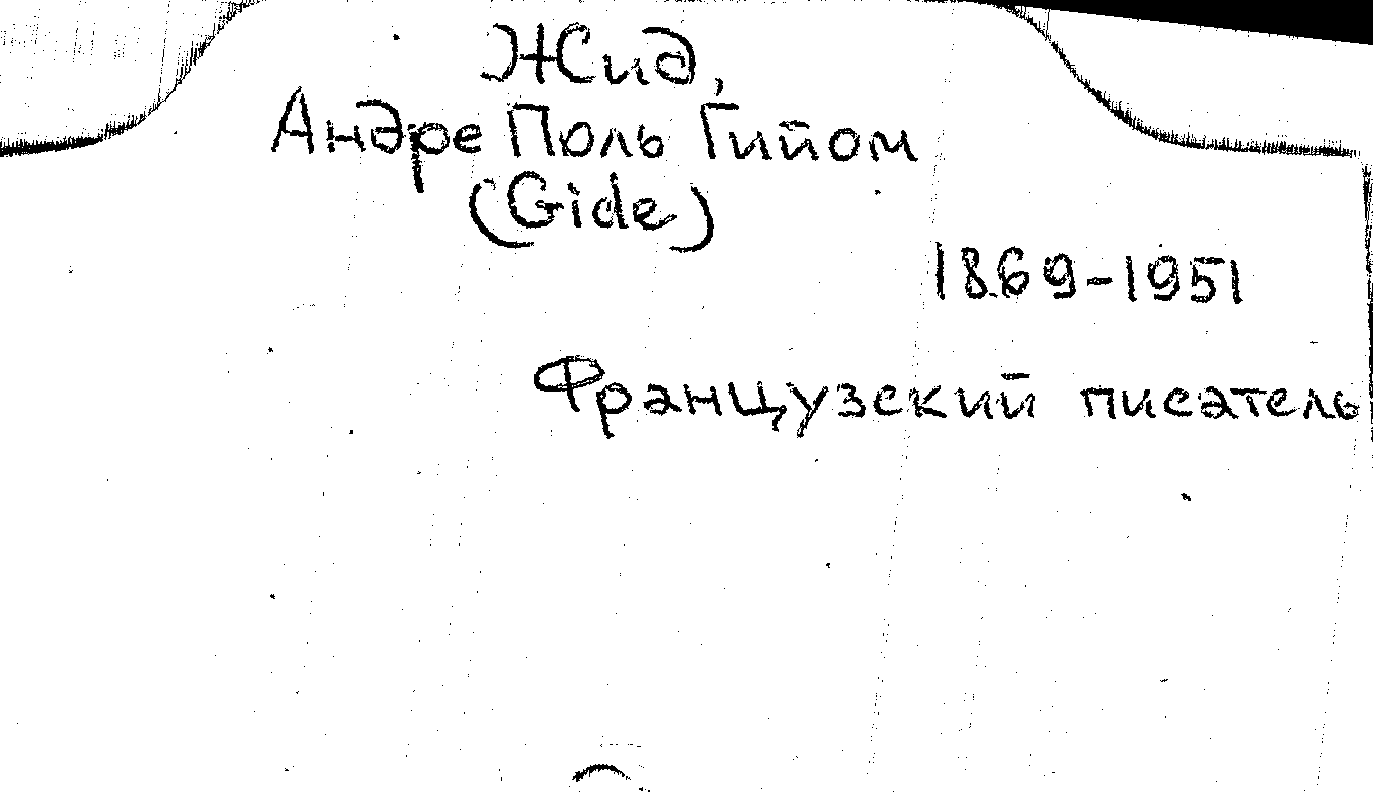 Жид,
Андре Поль Гийом
(Gide)
1869-1951
Французский писатель